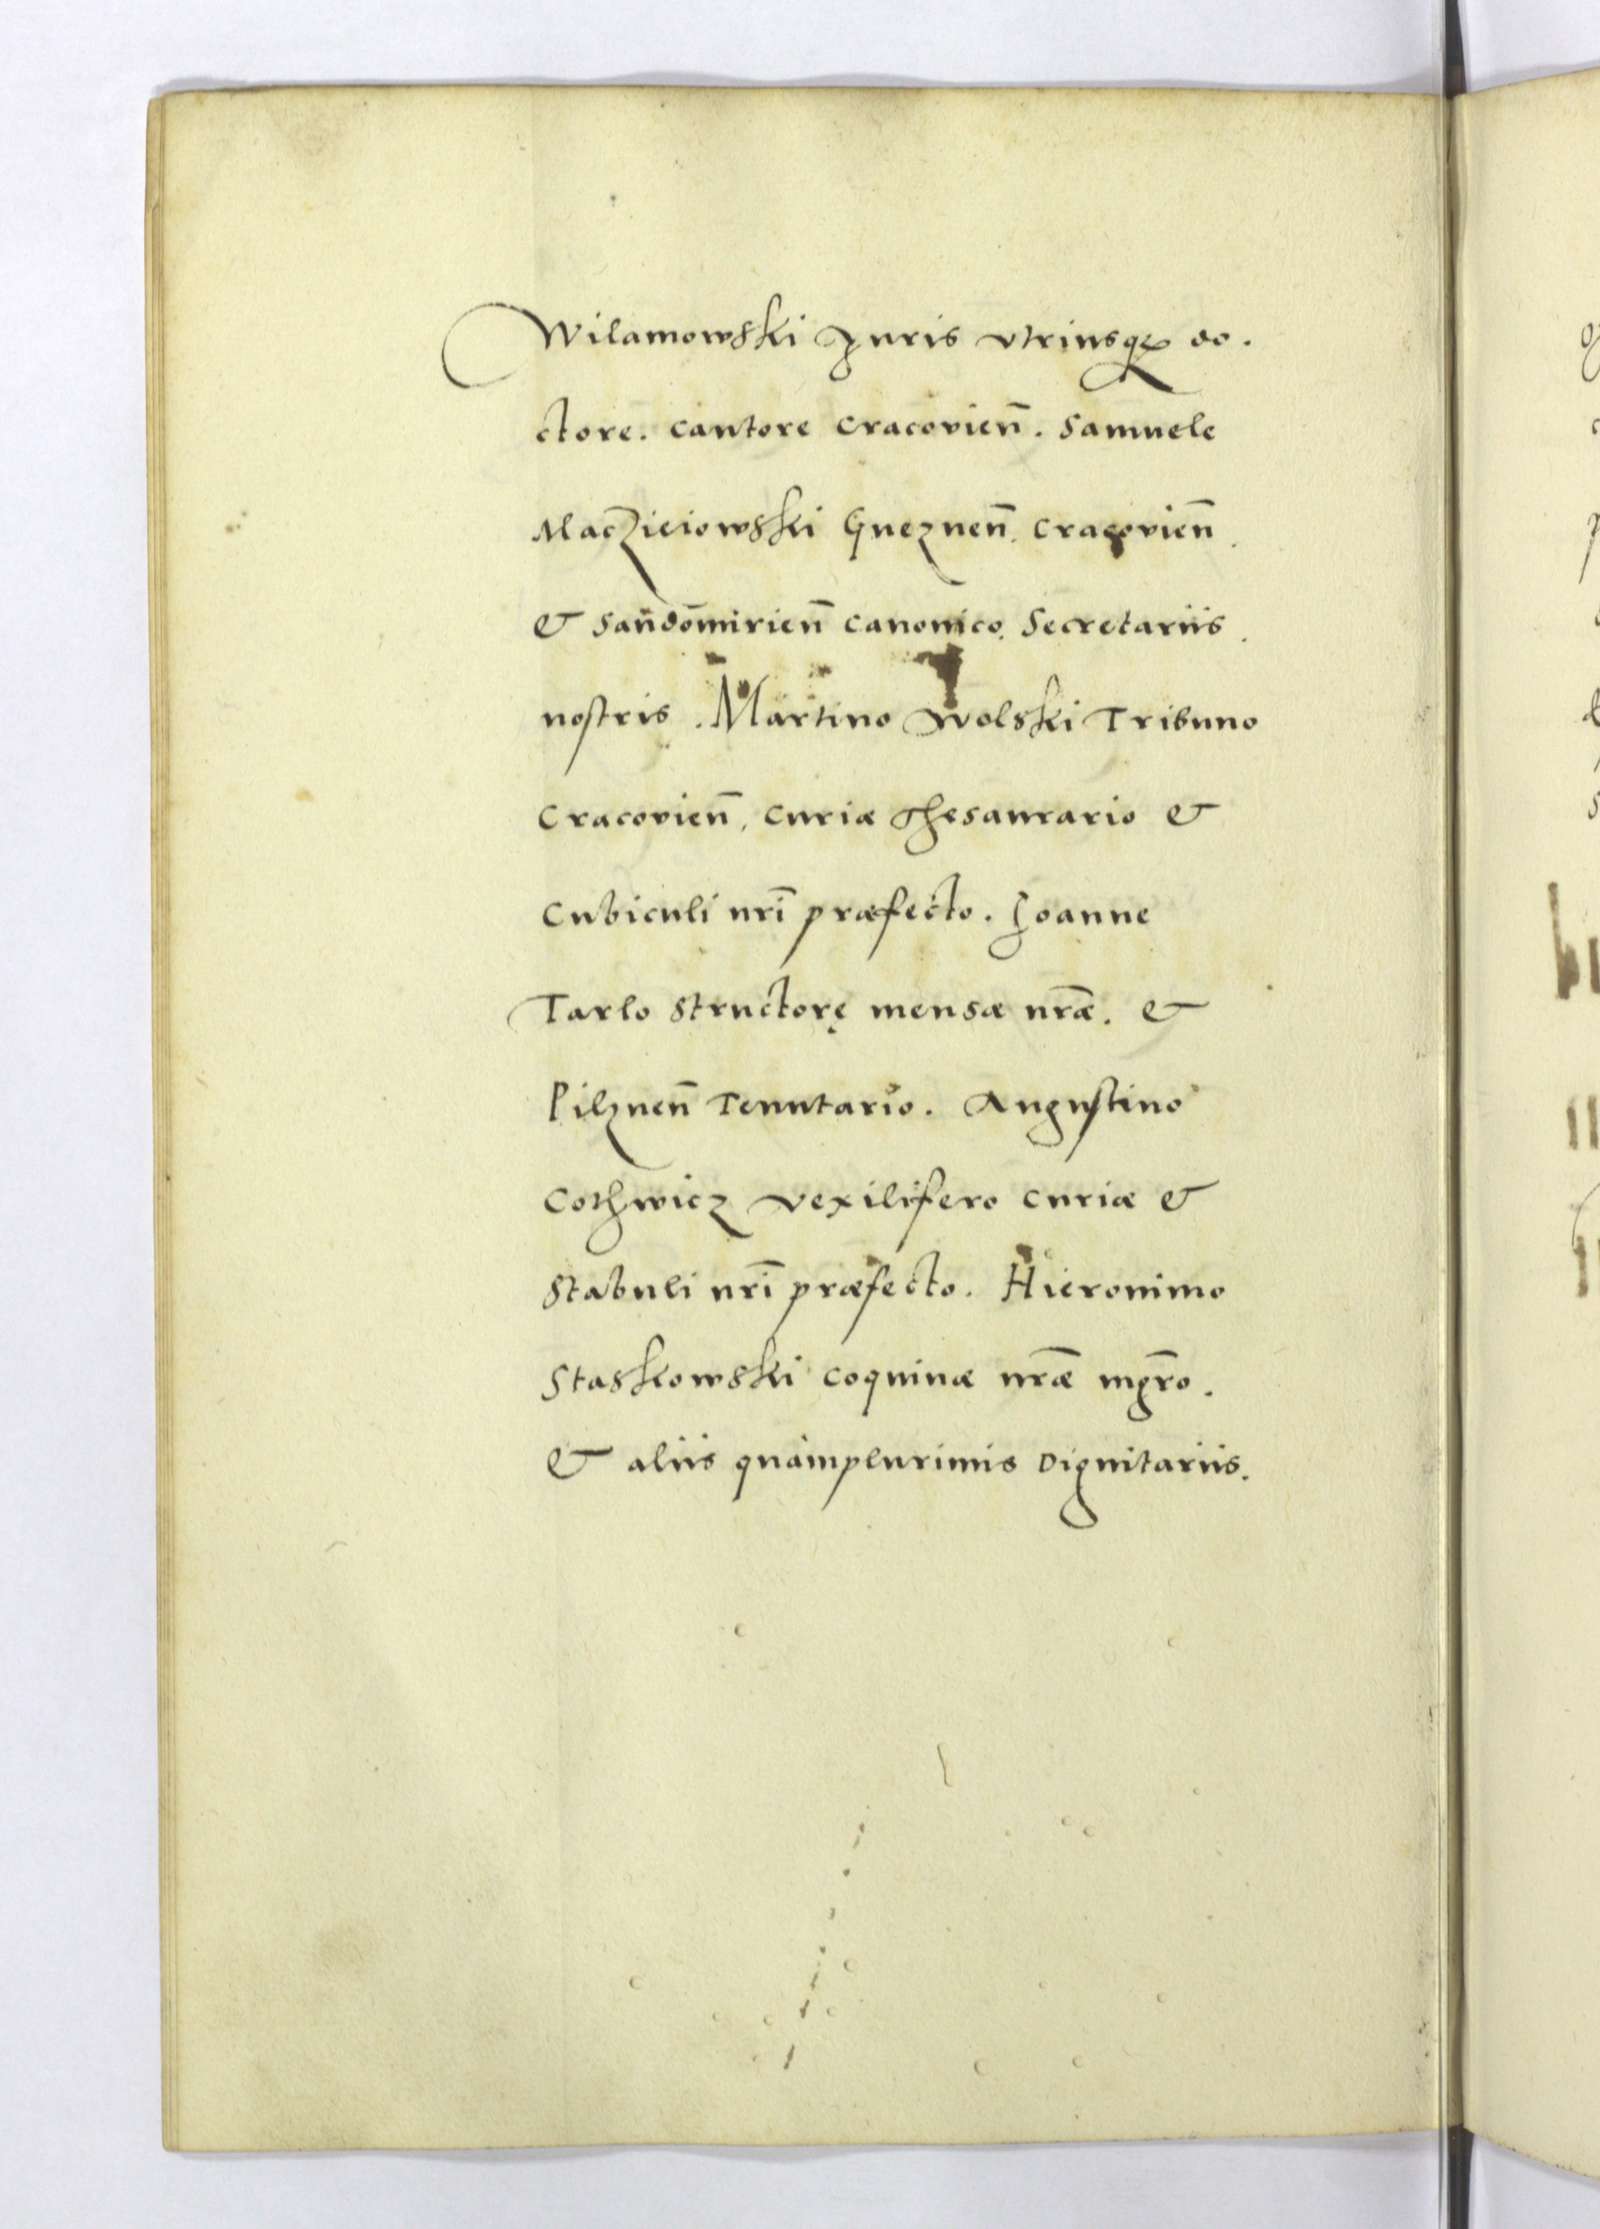 Wilamowski Juris vtriusqꝫ do.
ctore. cantore cracovien̄. Samuele
Maczieiowski Gneznen̄. cracovien̄.
& san̄dōmirien̄ canonico. Secretariis
nostris. Martino Wolski Tribuno
Cracovien̄. curiæ Thesaurario &
Cubiculi nrī præfecto. Joanne
Tarlo structorę mensæ nrǣ. &
Pilznen̄ Tenutario. Augustino
Cothwicz vexilifero curiæ &
Stabuli nrī præfecto. Hieronimo
Staskowski coquinæ nrǣ mgr̄o.
& aliis quàmplurimis Dignitariis.